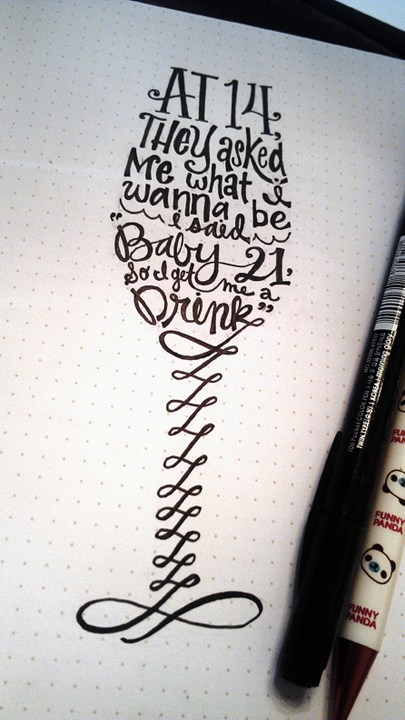 AT 14,
THEY asked
Me what i
wanna be
i said
"Baby 21,
So I get me a
Drink"
FUNNY
PANDA
FUNNY
PANDA